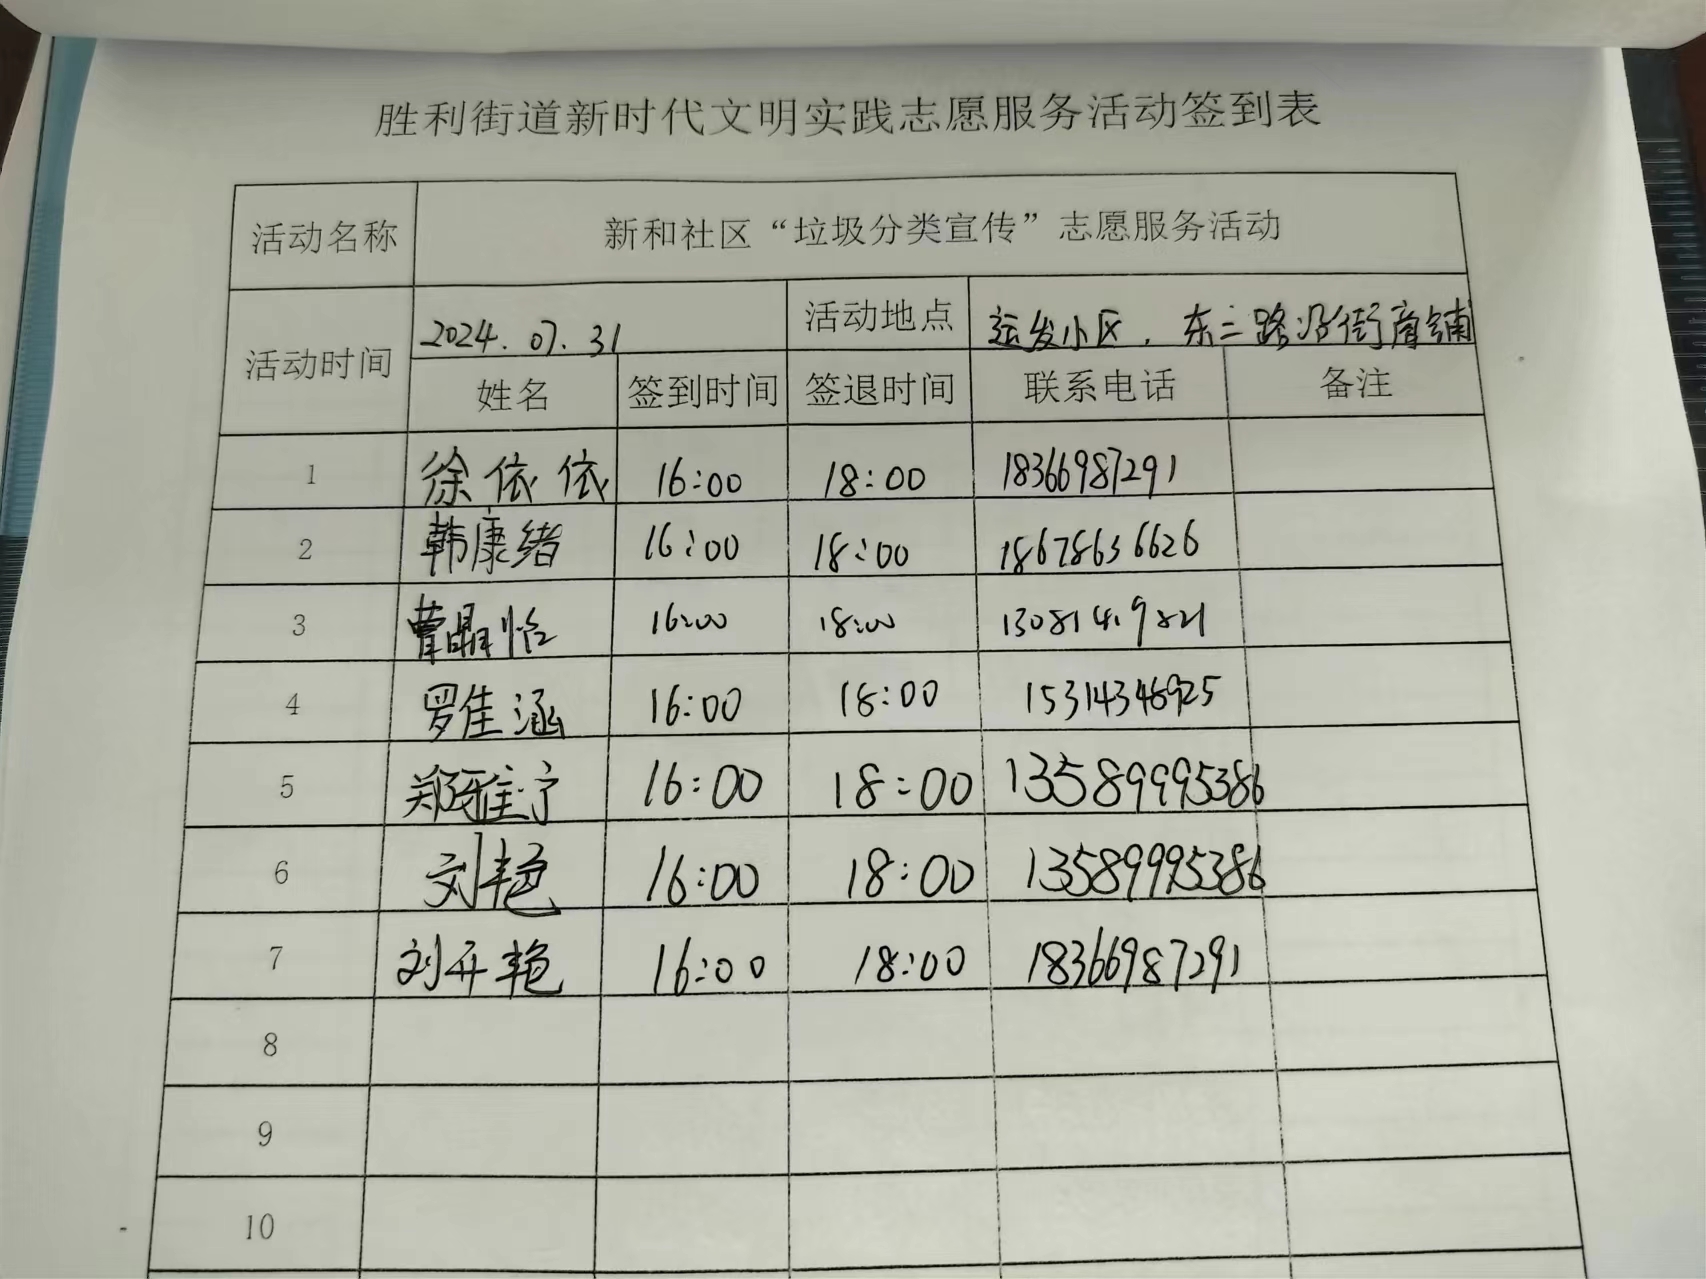 胜利街道新时代文明实践志愿服务活动签到表
活动名称 新和社区“垃圾分类宣传”志愿服务活动
活动时间 2024.07.31 活动地点 运发小区,东二路沿街商铺
姓名 签到时间 签退时间 联系电话 备注
1 徐依依 16:00 18:00 18366987291
2 韩康绪 16:00 18:00 18678636626
3 曹晶怡 16:00 18:00
4 罗佳涵 16:00 18:00 15314346925
5 郑雅宁 16:00 18:00 13589995386
6 刘艳 16:00 18:00 13589995386
7 刘开艳 16:00 18:00 18366987291
8
9
10